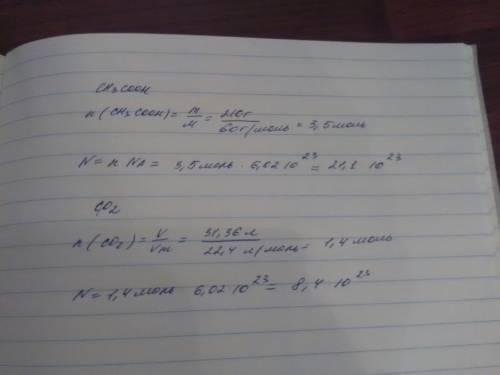 CH3COOH
n(CH3COOH) = m/M = 210г/60г/моль = 3,5 моль
N = n NA = 3,5 моль · 6,02 10^23 = 21,1 10^23
CO2
n(CO2) = V/Vm = 31,36 л/22,4 л/моль = 1,4 моль
N = 1,4 моль 6,02 10^23 = 8,4 · 10^23